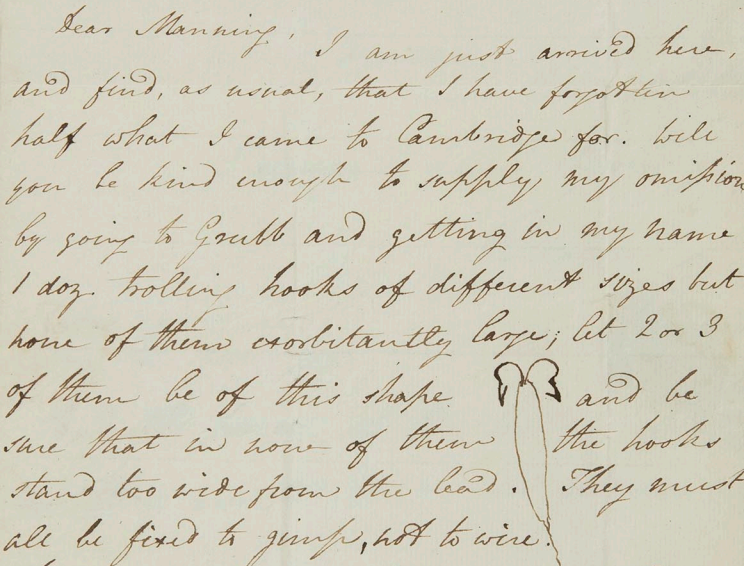 Dear Manning,
I am just arrived here,
and find, as usual, that I have forgotten
half what I came to Cambridge for. Will
you be kind enough to supply my omission
by going to Grubb and getting in my name
1 doz. trolling hooks of different sizes but
none of them exorbitantly large; let 2 or 3
of them be of this shape and be
sure that in none of them the hooks
stand too wide from the lead. They must
all be fixed to gimp, not to wire.